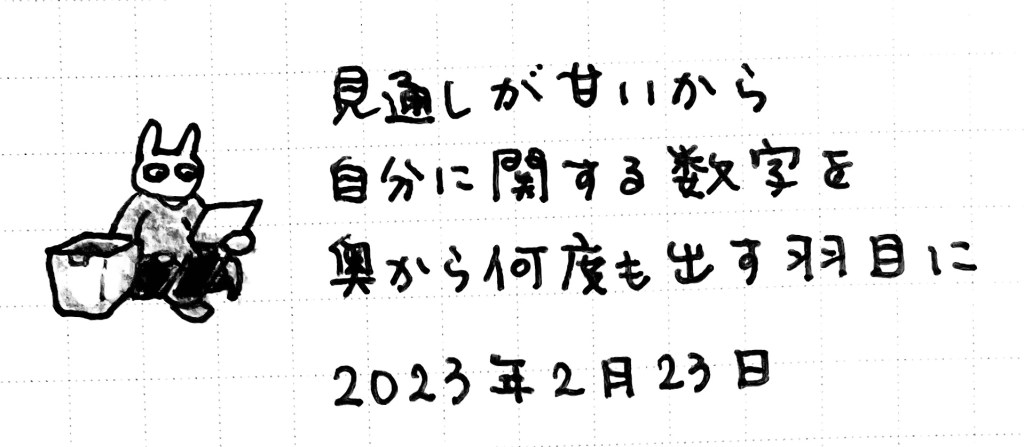 見通しが甘いから
自分に関する数字を
奥から何度も出す羽目に
2023年2月23日